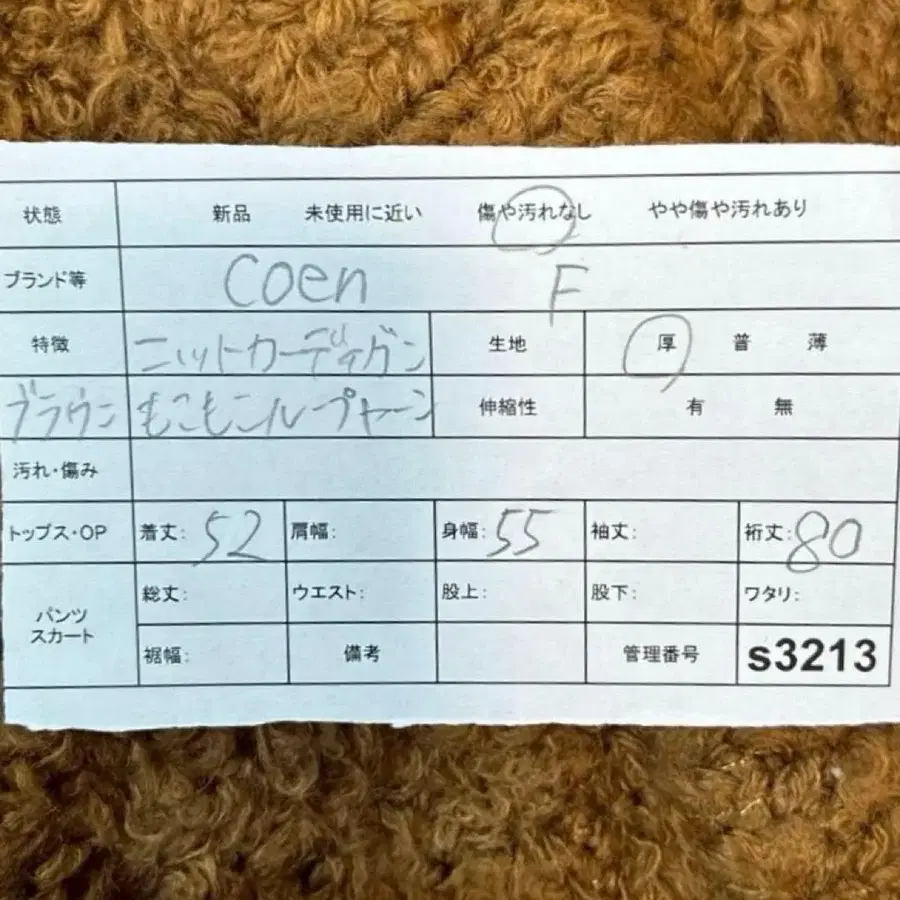 状態 新品 未使用に近い 傷や汚れなし やや傷や汚れあり
ブランド等 coen F
特徴 ニットカーディガン 生地 厚 普 薄
ブラウン もこもこループヤーン 伸縮性 有 無
汚れ・傷み
トップス・OP 着丈: 52 肩幅: 身幅: 55 袖丈: 裄丈: 80
パンツ スカート 総丈: ウエスト: 股上: 股下: ワタリ:
裾幅: 備考 管理番号 s3213